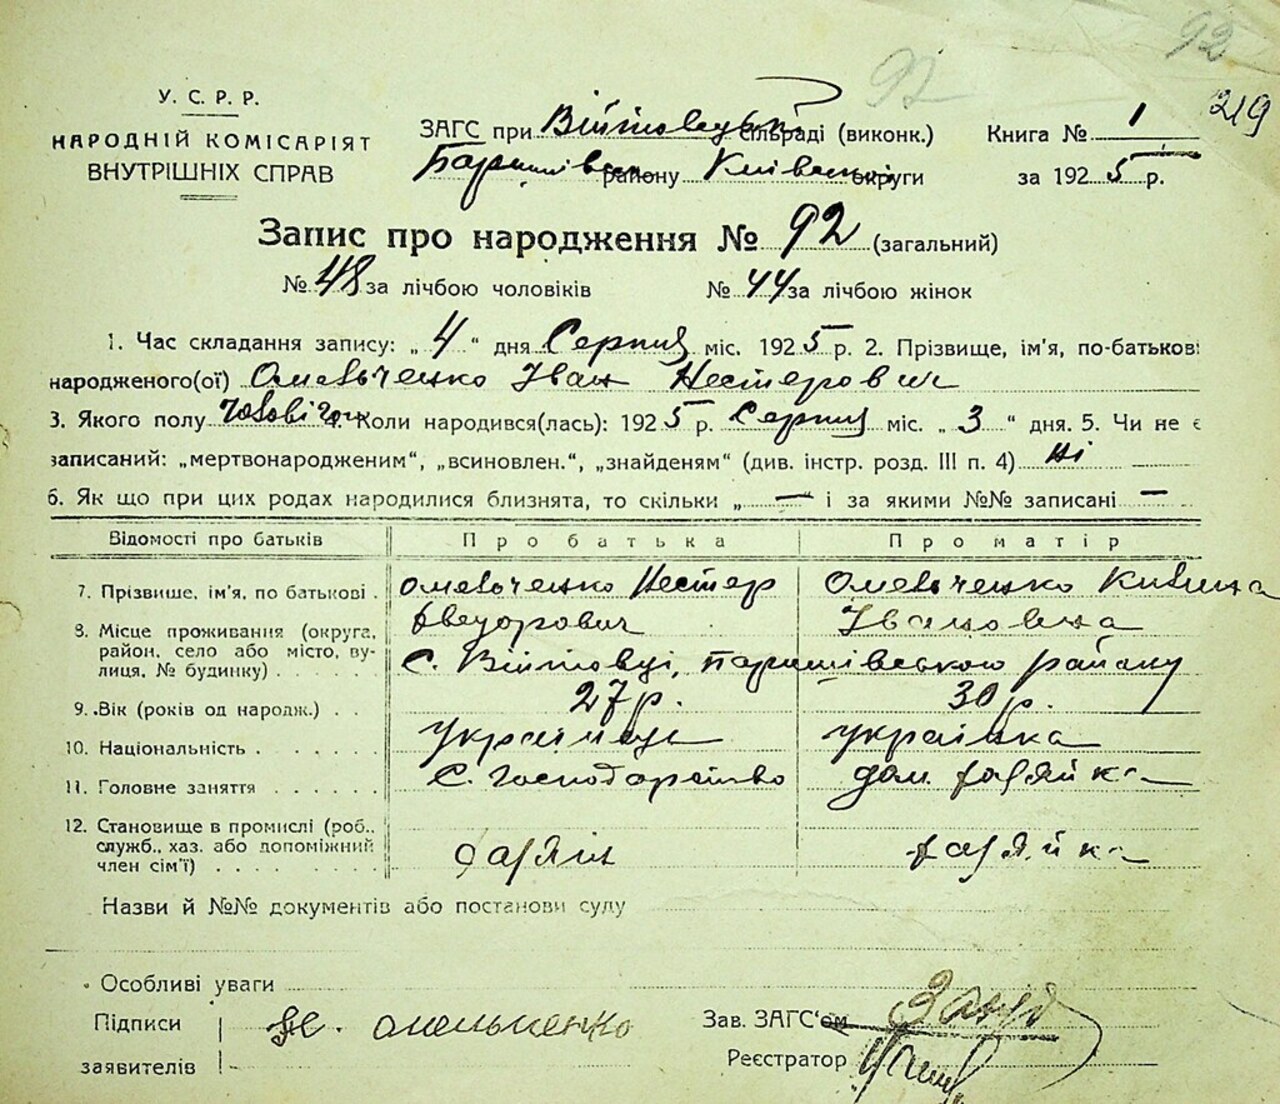 92
92
219
У. С. Р. Р.
НАРОДНІЙ КОМІСАРІЯТ
ВНУТРІШНІХ СПРАВ
ЗАГС при Війтовецькій сільраді (виконк.) Книга № 1
Баришівськ району Київської округи за 1925 р.
Запис про народження № 92 (загальний)
№ 48 за лічбою чоловіків № 44 за лічбою жінок
1. Час складання запису: „ 4 " дня Серпня міс. 1925 р. 2. Прізвище, ім'я, по-батькові
народженого(ої) Омельченко Іван Нестерович
3. Якого полу чоловічого 4. Коли народився(лась): 1925 р. Серпня міс. „ 3 " дня. 5. Чи не є
записаний: „мертвонародженим", „всиновлен.", „знайденям" (див. інстр. розд. III п. 4) ні
6. Як що при цих родах народилися близнята, то скільки „ — " і за якими №№ записані —
Відомості про батьків Про батька Про матір
7. Прізвище, ім'я, по батькові . Омельченко Нестер Омельченко
Федорович Івановна
8. Місце проживання (округа,
район, село або місто, вулиця, № будинку) . . . . . с. Війтовці, Баришівського району
9. Вік (років од народж.) . . 27 р. 30 р.
10. Національність . . . . . українець українка
11. Головне заняття . . . . . . с. господарство дом. хазяйка
12. Становище в промислі (роб.,
служб., хаз. або допоміжний
член сім'ї) . . . . . . . . хазяїн хазяйка
Назви й №№ документів або постанови суду
Особливі уваги
Підписи Не. Омельченко Зав. ЗАГС'ом
заявителів Реєстратор